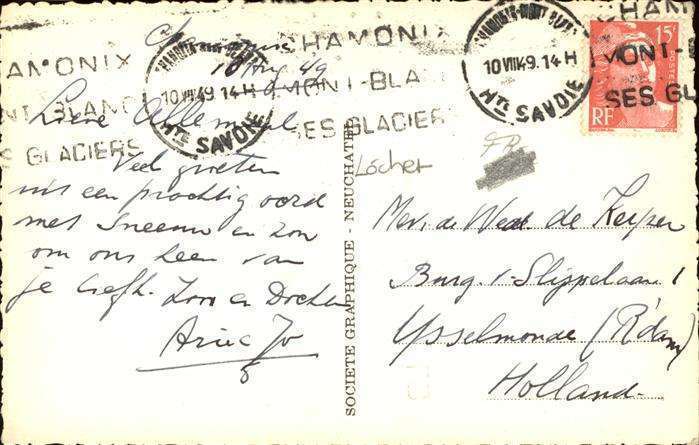 Chamonix
10 Aug 49
Lieve Allemaal
Veel groeten
uit een prachtig oord
met Sneeuw en Zon
om ons heen van
je liefh. Zoon en Dochter
Arie Jo
CHAMONIX
MONT-BLANC
SES GLACIERS
CHAMONIX-MONT-BLANC
10 VIII 49. 14 H
HTE SAVOIE
CHAMONIX
MONT-BLANC
SES GLACIERS
CHAMONIX-MONT-BLANC
10 VIII 49. 14 H
HTE SAVOIE
CHAMONIX
MONT-
SES GLA
15F
RF
SOCIETE GRAPHIQUE - NEUCHATEL
Löcher
FR
Mevr. de Wed. de Keyper
Burg. v. Slijpelaan 1
Ysselmonde (R'dam)
Holland